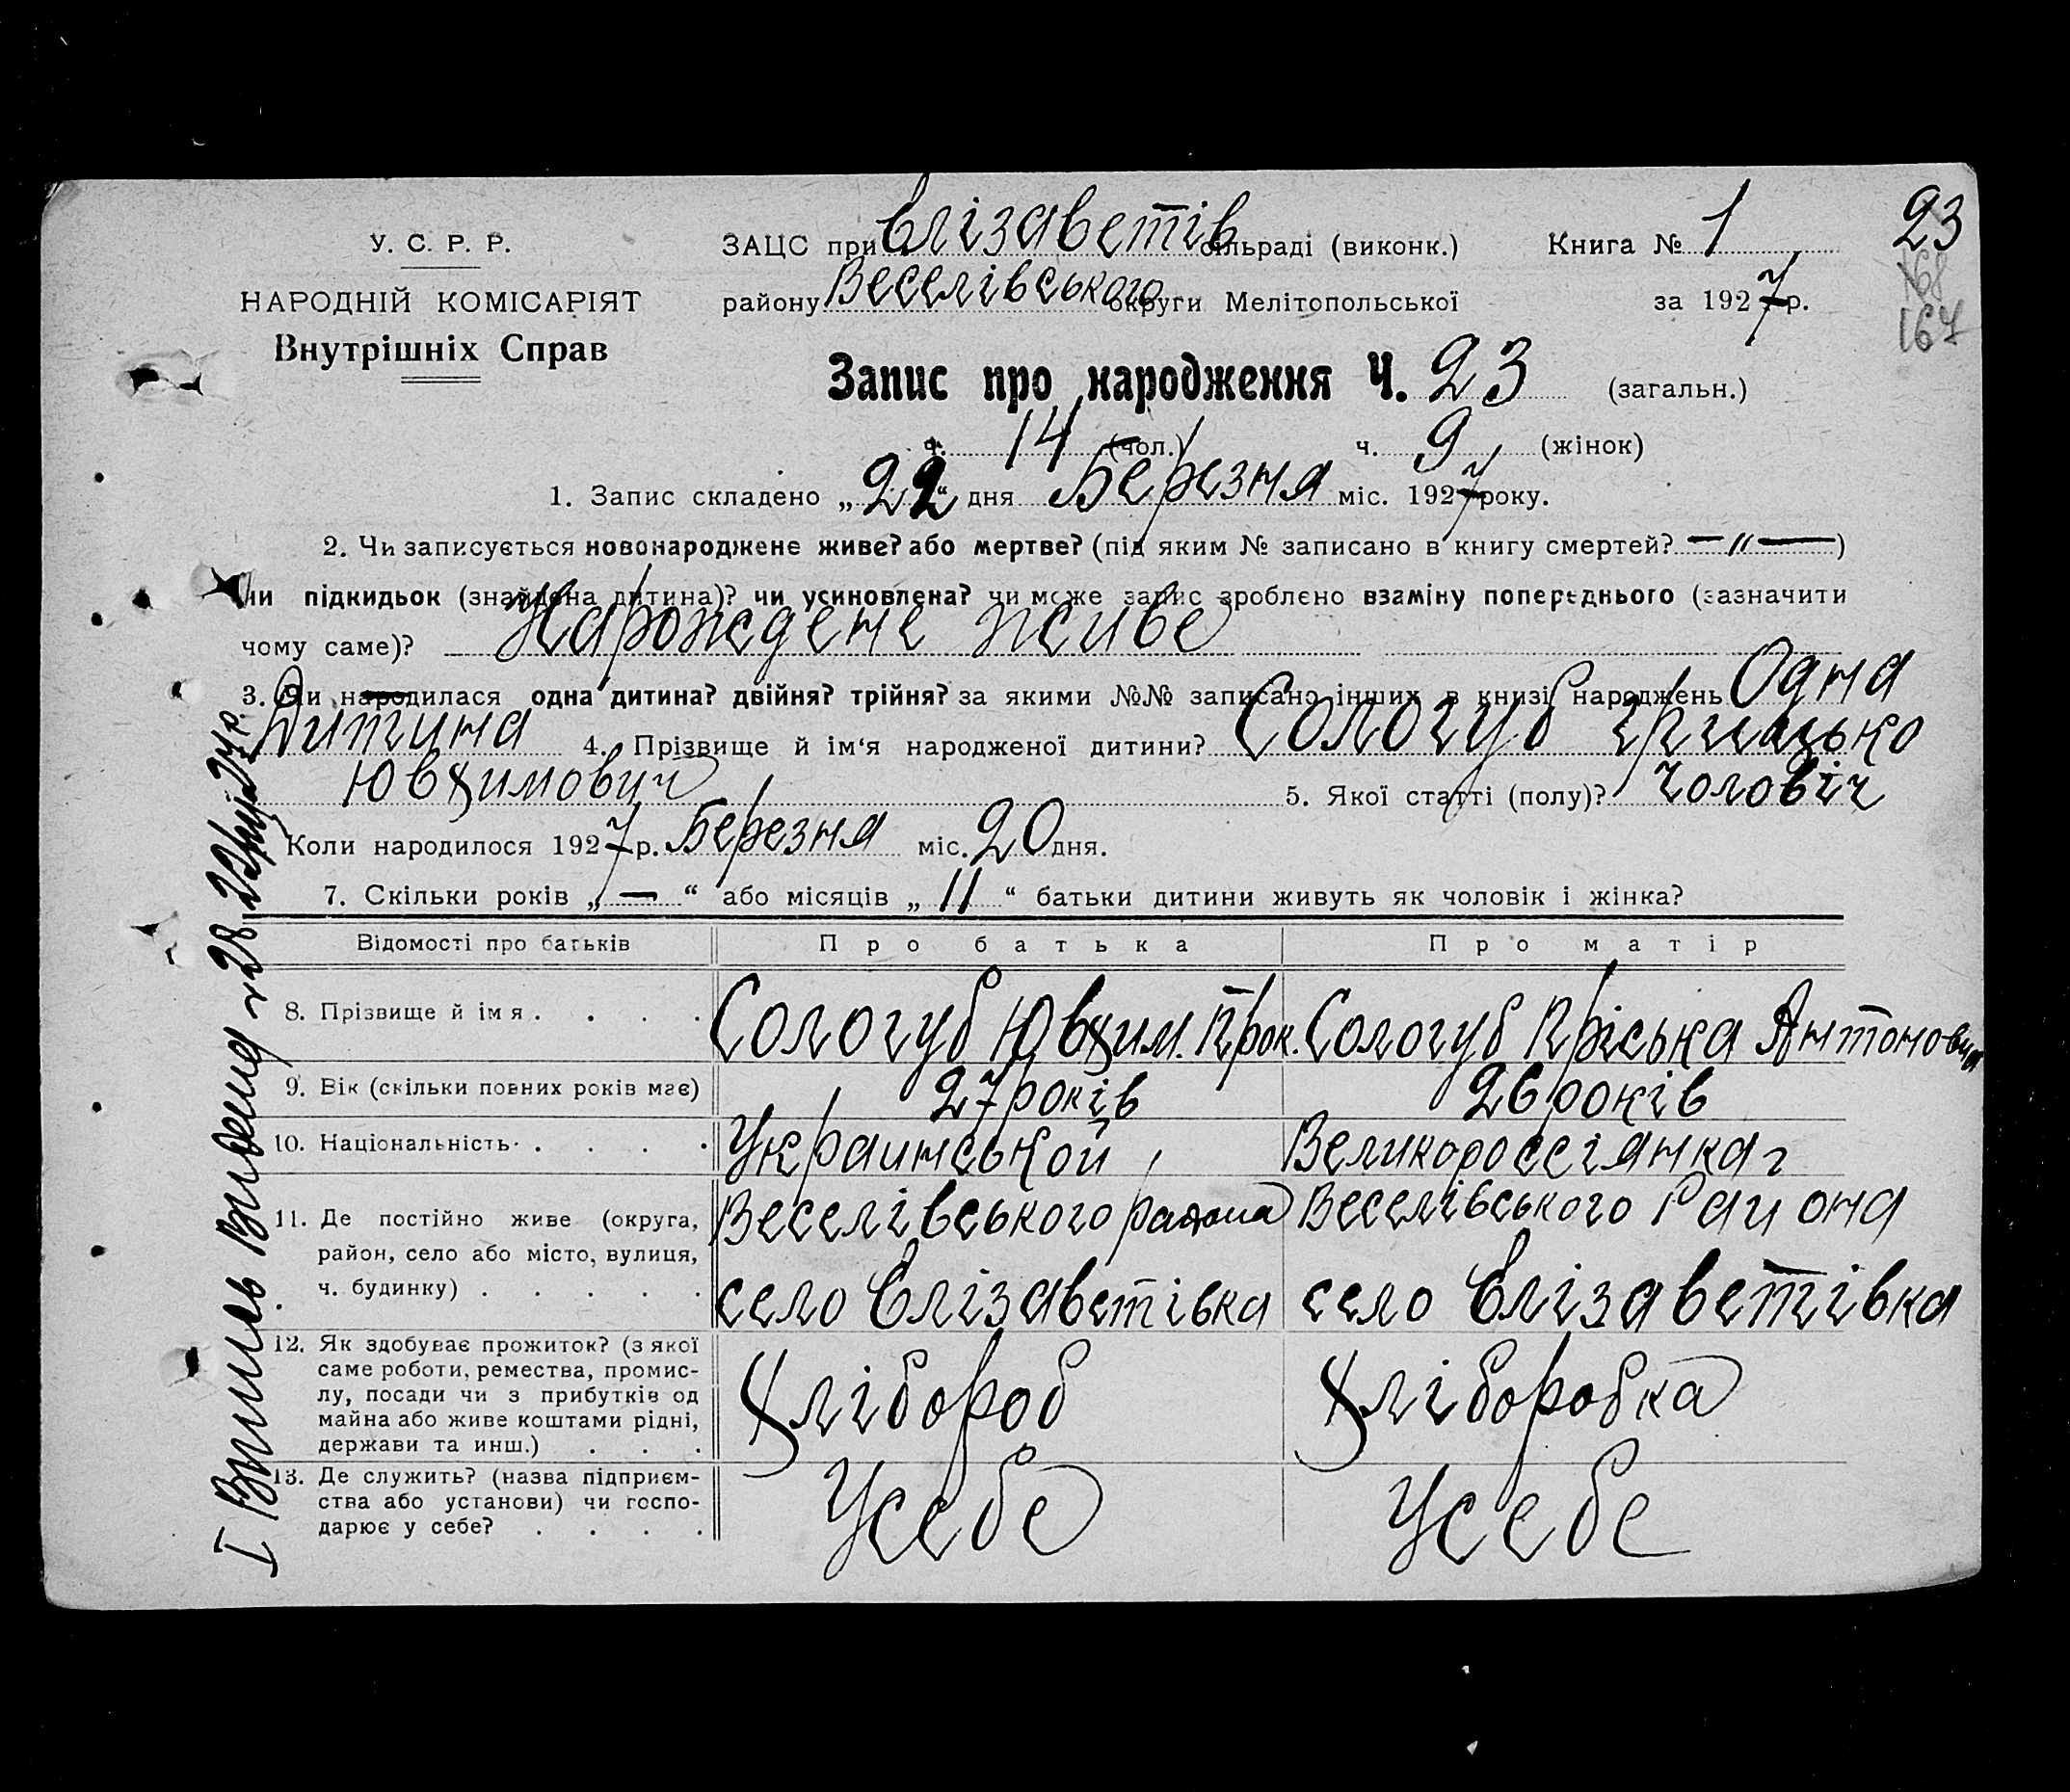 У. С. Р. Р.
НАРОДНІЙ КОМІСАРІЯТ
Внутрішніх Справ
ЗАЦС при Єлізаветів сільраді (виконк.)
району Веселівського округи Мелітопольської
Книга № 1
за 1927 р.
23
168
167
Запис про народження Ч. 23 (загальн.)
ч. 14 (чол.) ч. 9 (жінок)
1. Запис складено „22“ дня Березня міс. 1927 року.
2. Чи записується новонароджене живе? або мертве? (під яким № записано в книгу смертей? — „ —)
чи підкидьок (знайдена дитина)? чи усиновлена? чи може запис зроблено взаміну попереднього (зазначити
чому саме)? Нарождене живе
3. Чи народилася одна дитина? двійня? трійня? за якими №№ записано інших в книзі народжень Одна
Дитина 4. Прізвище й ім‘я народженої дитини? Сологуб Грицько
Ювхимович 5. Якої статті (полу)? Чоловіч
Коли народилося 1927 р. Березня міс. 20 дня.
7. Скільки років „ — “ або місяців „ 11 “ батьки дитини живуть як чоловік і жінка?
Відомості про батьків Про батька Про матір
8. Прізвище й імя . . . . Сологуб Ювхим. Прок. Сологуб Пріська Антоновна
9. Вік (скільки повних років має) 27 років 26 років
10. Національність . . . . Украинськой Великоросегянка
11. Де постійно живе (округа, Веселівського района Веселівського Района
район, село або місто, вулиця,
ч. будинку) . . . . . село Єлізаветівка село Єлізаветівка
12. Як здобуває прожиток? (з якої
саме роботи, ремества, промис-
лу, посади чи з прибутків од Хлібороб Хліборобка
майна або живе коштами рідні,
держави та инш.) . . .
13. Де служить? (назва підприєм-
ства або установи) чи госпо- Усебе Усебе
дарює у себе? . . . .